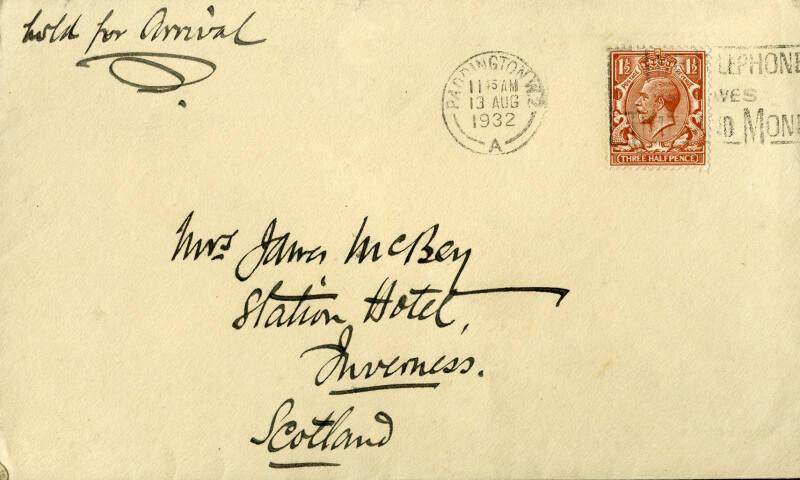 hold for Arrival
PADDINGTON. W.2
11 15 AM
13 AUG
1932
A
1½ 1½
THREE HALFPENCE
LEPHONE
VES
ND MONE
Mrs James McBey
Station Hotel,
Inverness.
Scotland